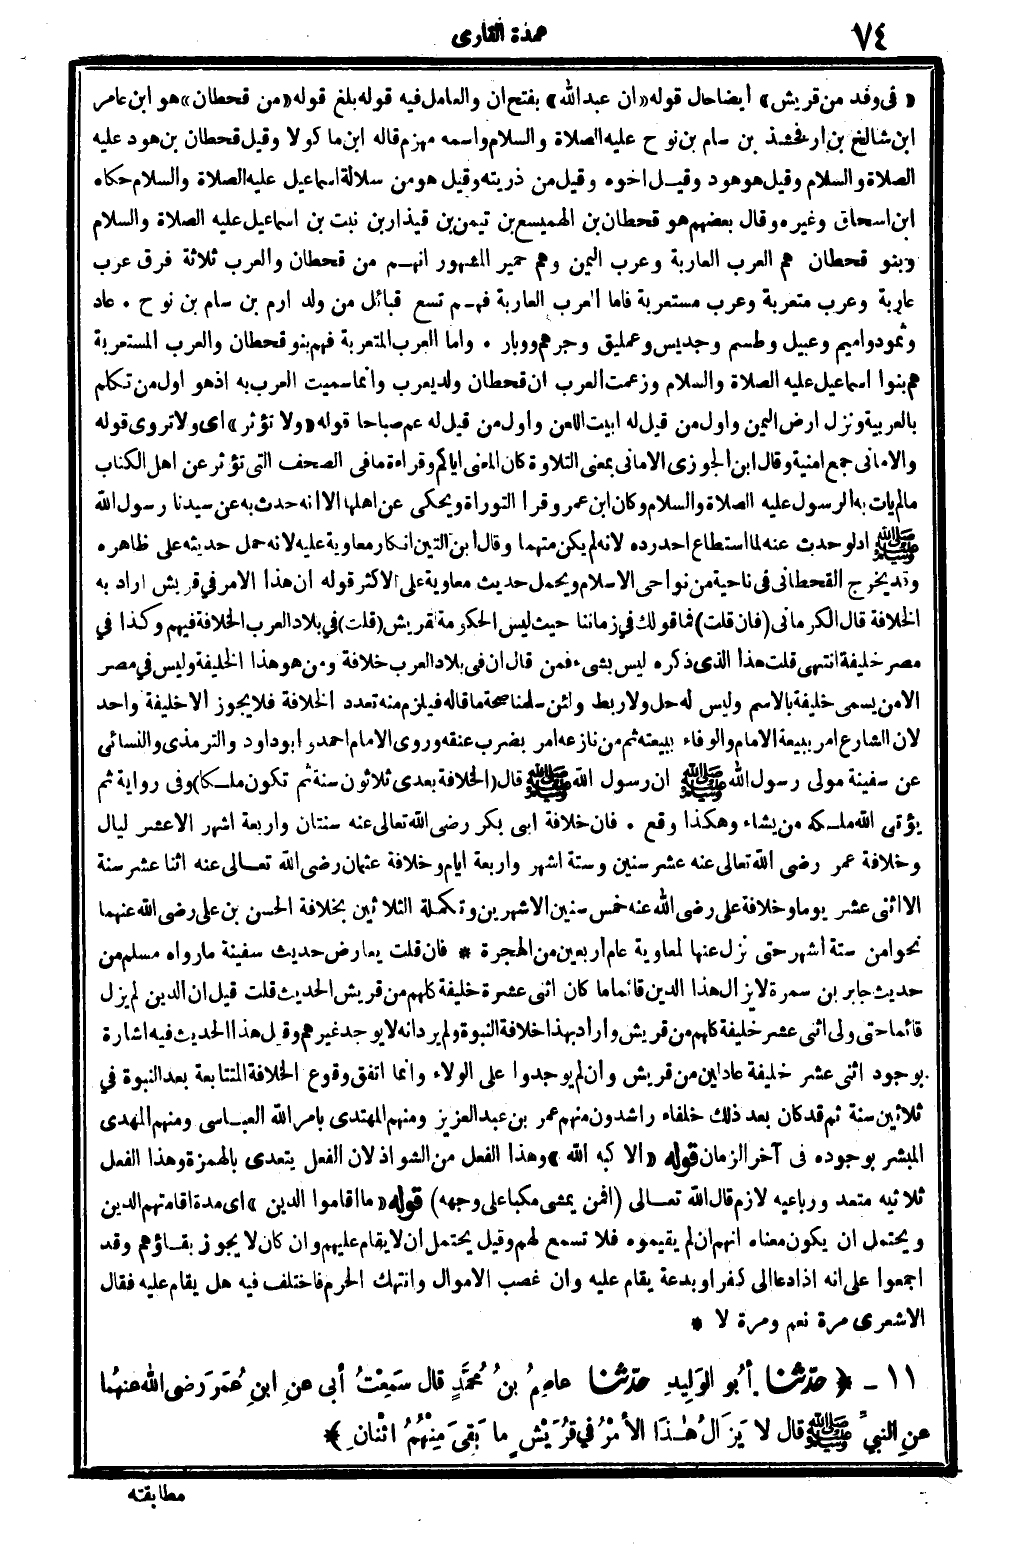 ٧٤
عمدة القارى
« فى وفد من قريش » أيضا حال قوله « ان عبد الله » بفتح ان والعامل فيه قوله بلغ قوله « من قحطان » هو ابن عامر
ابن شالخ بن ارفخشذ بن سام بن نوح عليه الصلاة والسلام واسمه مهزم قاله ابن ماكولا وقيل قحطان بن هود عليه
الصلاة والسلام وقيل هو هود وقيل اخوه وقيل من ذريته وقيل هو من سلالة اسماعيل عليه الصلاة والسلام حكاه
ابن اسحاق وغيره وقال بعضهم هو قحطان بن الهميسع بن تيمن بن قيذار بن نبت بن اسماعيل عليه الصلاة والسلام
وبنو قحطان هم العرب العاربة وعرب اليمن وهم حمير المشهور انهم من قحطان والعرب ثلاثة فرق عرب
عاربة وعرب متعربة وعرب مستعربة فاما العرب العاربة فهم تسع قبائل من ولد ارم بن سام بن نوح . عاد
وثمود واميم وعبيل وطسم وجديس وعمليق وجرهم ووبار . واما العرب المتعربة فهم بنو قحطان والعرب المستعربة
هم بنوا اسماعيل عليه الصلاة والسلام وزعمت العرب ان قحطان ولد يعرب وانما سميت العرب به اذ هو اول من تكلم
بالعربية ونزل ارض اليمن واول من قيل له ابيت اللعن واول من قيل له عم صباحا قوله « ولا تؤثر » اى ولا تروى قوله
والامانى جمع امنية وقال ابن الجوزى الامانى بمعنى التلاوة كان المعنى اياكم وقراءة ما فى الصحف التى تؤثر عن اهل الكتاب
مالم يات به الرسول عليه الصلاة والسلام وكان ابن عمرو قرا التوراة ويحكى عن اهلها الا انه حدث به عن سيدنا رسول الله
ﷺ اذ لو حدث عنه لما استطاع احد رده لانه لم يكن متهما وقال أبن التين انكار معاوية عليه لانه حمل حديثه على ظاهره
وقد يخرج القحطانى فى ناحية من نواحى الاسلام ويحمل حديث معاوية على الاكثر قوله ان هذا الامر في قريش اراد به
الخلافة قال الكرمانى (فان قلت) فما قولك في زماننا حيث ليس الحكومة لقريش (قلت) في بلاد العرب الخلافة فيهم وكذا في
مصر خليفة انتهى قلت هذا الذى ذكره ليس بشىء فمن قال ان فى بلاد العرب خلافة ومن هو هذا الخليفة وليس في مصر
الا من يسمى خليفة بالاسم وليس له حل ولا ربط ولئن سلمنا صحة ما قاله فيلزم منه تعدد الخلافة فلا يجوز الا خليفة واحد
لان الشارع امر ببيعة الامام والوفاء ببيعته ثم من نازعه امر بضرب عنقه وروى الامام احمد وابو داود والترمذى والنسائى
عن سفينة مولى رسول الله ﷺ ان رسول الله ﷺ قال (الخلافة بعدى ثلاثون سنة ثم تكون ملكا) وفى رواية ثم
يؤتى الله ملكه من يشاء وهكذا وقع . فان خلافة ابى بكر رضى الله تعالى عنه سنتان واربعة اشهر الا عشر ليال
وخلافة عمر رضى الله تعالى عنه عشر سنين وستة اشهر واربعة ايام وخلافة عثمان رضى الله تعالى عنه اثنا عشر سنة
الا اثنى عشر يوما وخلافة على رضى الله عنه خمس سنين الا شهرين وتكملة الثلاثين بخلافة الحسن بن على رضى الله عنهما
نحوا من ستة أشهر حتى نزل عنها لمعاوية عام أربعين من الهجرة * فان قلت يعارض حديث سفينة ما رواه مسلم من
حديث جابر بن سمرة لا يزال هذا الدين قائما ما كان اثنى عشرة خليفة كلهم من قريش الحديث قلت قيل ان الدين لم يزل
قائما حتى ولى اثنى عشر خليفة كلهم من قريش واراد بهذا خلافة النبوة ولم يرد انه لا يوجد غيرهم وقيل هذا الحديث فيه اشارة
بوجود اثنى عشر خليفة عادلين من قريش وان لم يوجدوا على الولاء وانما اتفق وقوع الخلافة المتتابعة بعد النبوة في
ثلاثين سنة ثم قد كان بعد ذلك خلفاء راشدون منهم عمر بن عبد العزيز ومنهم المهتدى بامر الله العباسى ومنهم المهدى
المبشر بوجوده فى آخر الزمان قوله « الا كبه الله » وهذا الفعل من الشواذ لان الفعل يتعدى بالهمزة وهذا الفعل
ثلاثيه متعد ورباعيه لازم قال الله تعالى (افمن يمشى مكبا على وجهه) قوله « ما اقاموا الدين » اى مدة اقامتهم الدين
ويحتمل ان يكون معناه انهم ان لم يقيموه فلا تسمع لهم وقيل يحتمل ان لا يقام عليهم وان كان لا يجوز بقاؤهم وقد
اجمعوا على انه اذا دعا الى كفر او بدعة يقام عليه وان غصب الاموال وانتهك الحرم فاختلف فيه هل يقام عليه فقال
الاشعرى مرة نعم ومرة لا *
١١ - ﴿ حدّثنا أبُو الوَلِيدِ حدّثنا عاصِمُ بنُ مُحَمَّدٍ قال سَمِعْتُ أبى عنِ ابنِ عُمَرَ رضى الله عنهُما
عنِ النبىِّ ﷺ قال لا يَزَالُ هٰذَا الأمْرُ في قُرَيْشٍ ما بَقِىَ مِنْهُمُ اثْنانِ ﴾
مطابقته